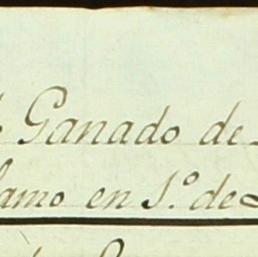 Ganado de
amo en 1.º de